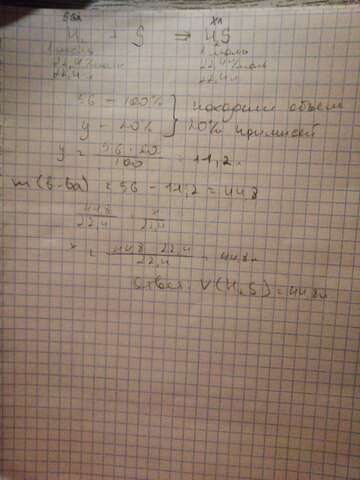 56л xл
H₂ + S ⇒ H₂S
1 моль 1 моль
22,4 л/моль 22,4 л/моль
22,4 л 22,4 л
56 – 100% } находим объем
y – 20% } 20% примесей
y = 56 · 20 / 100 = 11,2.
m(в-ва) = 56 – 11,2 = 44,8
44,8 / 22,4 = x / 22,4
x = 44,8 · 22,4 / 22,4 = 44,8л
Ответ: V(H₂S) = 44,8л